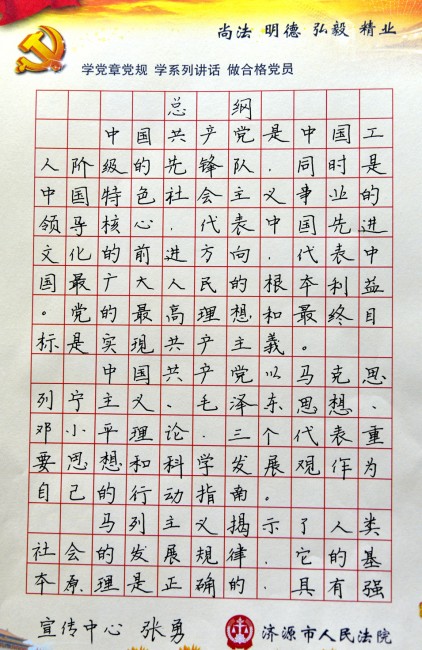 尚法 明德 弘毅 精业
学党章党规 学系列讲话 做合格党员
总 纲
中国共产党是中国工
人阶级的先锋队.同时是
中国特色社会主义事业的
领导核心.代表中国先进
文化的前进方向.代表中
国最广大人民的根本利益
。党的最高理想和最终目
标是实现共产主義。
中国共产党以马克思
列宁主义、毛泽东思想、
邓小平理论.三个代表重
要思想和科学发展观作为
自己的行动指南。
马列主义揭示了人类
社会的发展规律.它的基
本原理是正确的.具有强
宣传中心 张勇
济源市人民法院